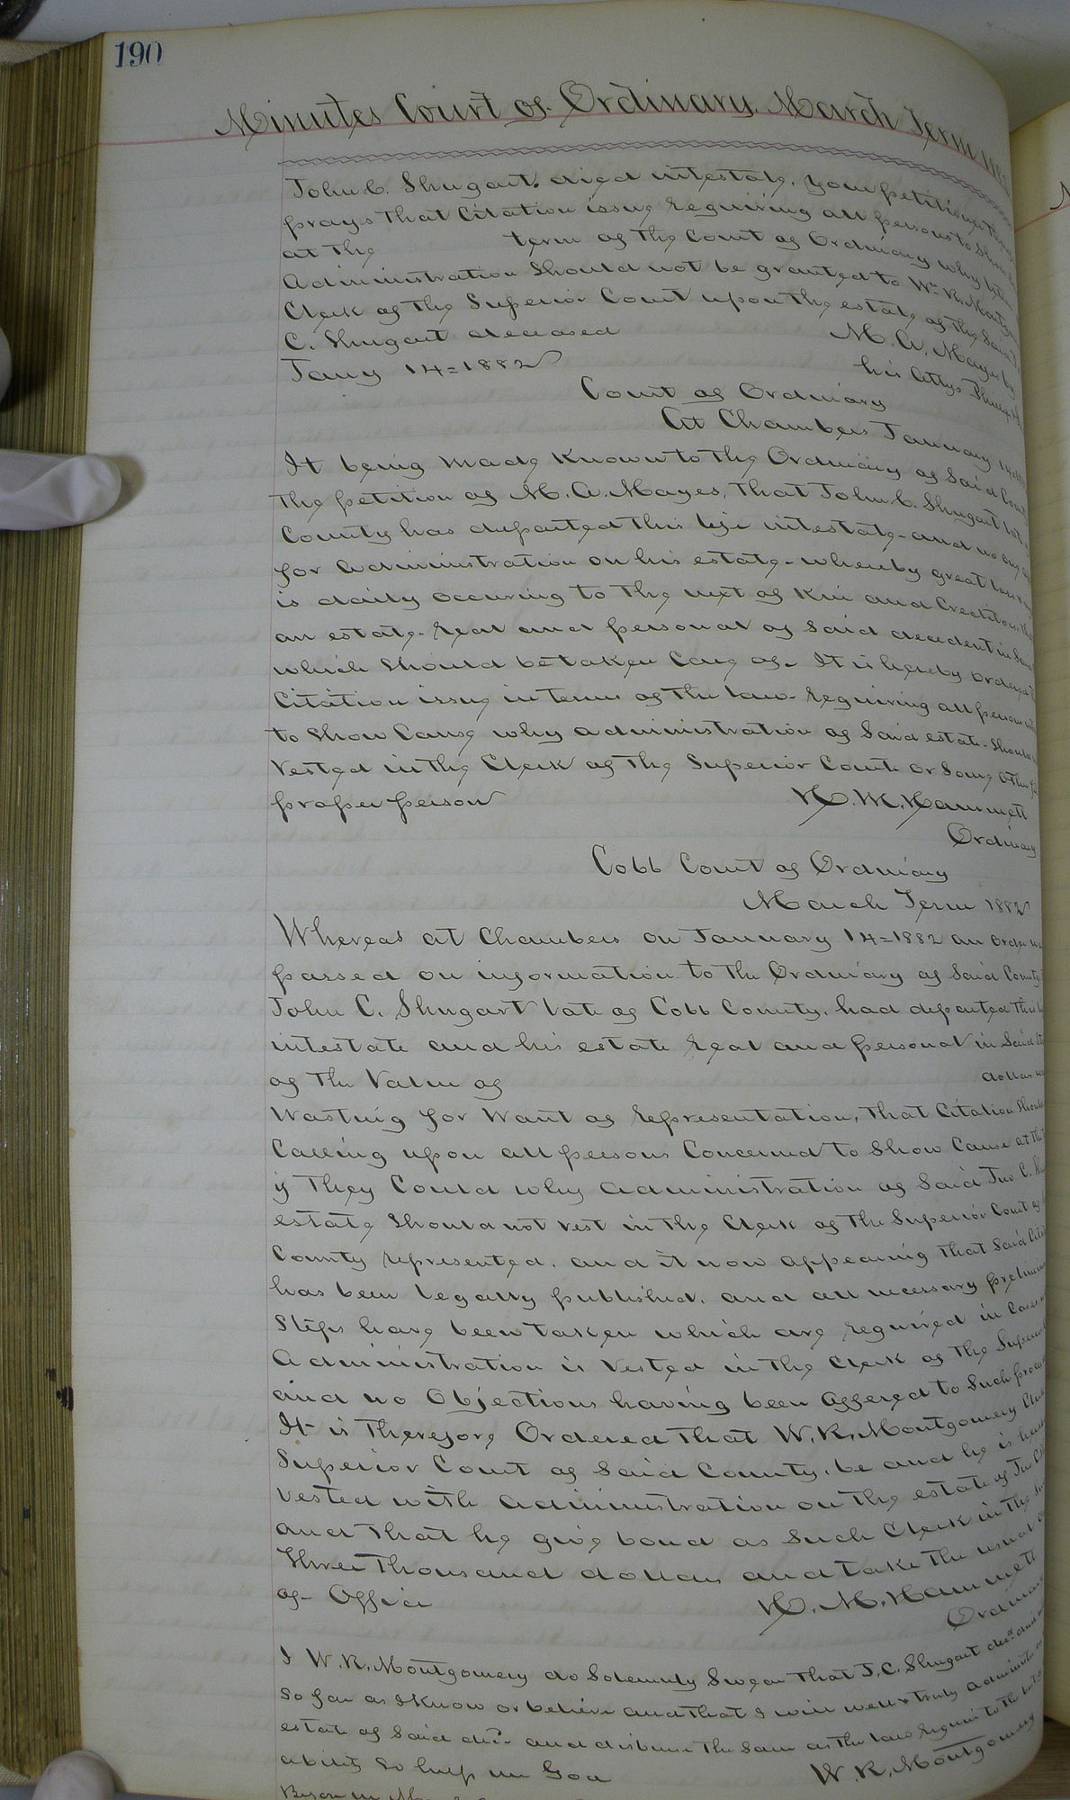 190
Minutes Court of Ordinary, March Term
John C. Shugart, died intestate, your petitioner
prays that Citation issue requiring all persons to Show
at the term of the Court of Ordinary why
Administration Should not be granted to Wm R.
Clerk of the Superior Court upon the estate of the Said
C. Shugart deceased M. A. Mayes by
Jany 14=1882 his Attys
Court of Ordinary
At Chambers January 14
It being made Known to the Ordinary of Said
the petition of M. A. Mayes, that John C. Shugart
County has departed this life intestate- and no
for administration on his estate- whereby great
is daily occuring to the next of Kin and Creditors,
an estate- real and personal of said decedent in
which should be taken Care of- It is hereby ordered
Citation issue in terms of the law- requiring all persons
to show Cause why administration of Said estate- should
Vested in the Clerk of the Superior Court or Some other
proper person H. M. Hammett
Ordinary
Cobb Court of Ordinary
March Term 1882
Whereas at Chambers on January 14=1882 an order
passed on information to the Ordinary of Said County
John C. Shugart late of Cobb County, had departed this
intestate and his estate real and personal in Said
of the Value of dollars
Wasting for Want of representation, that Citation should
Calling upon all persons Concerned to Show Cause at the
if they Could why administration of Said Jno C.
estate should not vest in the Clerk of the Superior Court of
County represented, and it now appearing that said
has been legally published, and all necessary
Steps have been taken which are required in Cases
Administration is Vested in the Clerk of the Superior
and no Objections having been offered to Such
It is Therefore Ordered that W. R. Montgomery Clerk
Superior Court of Said County, be and he is
Vested with administration on the estate of Jno C.
and that he give bond as Such Clerk in the
Three Thousand dollars and take the usual
of- Office H. M. Hammett
Ordinary
I W. R. Montgomery do Solemnly Swear that J. C. Shugart decd
So far as I know or believe and that I will well & truly
estate of said decd and disburse the Same as the law requires to the
ability So help me God W. R. Montgomery